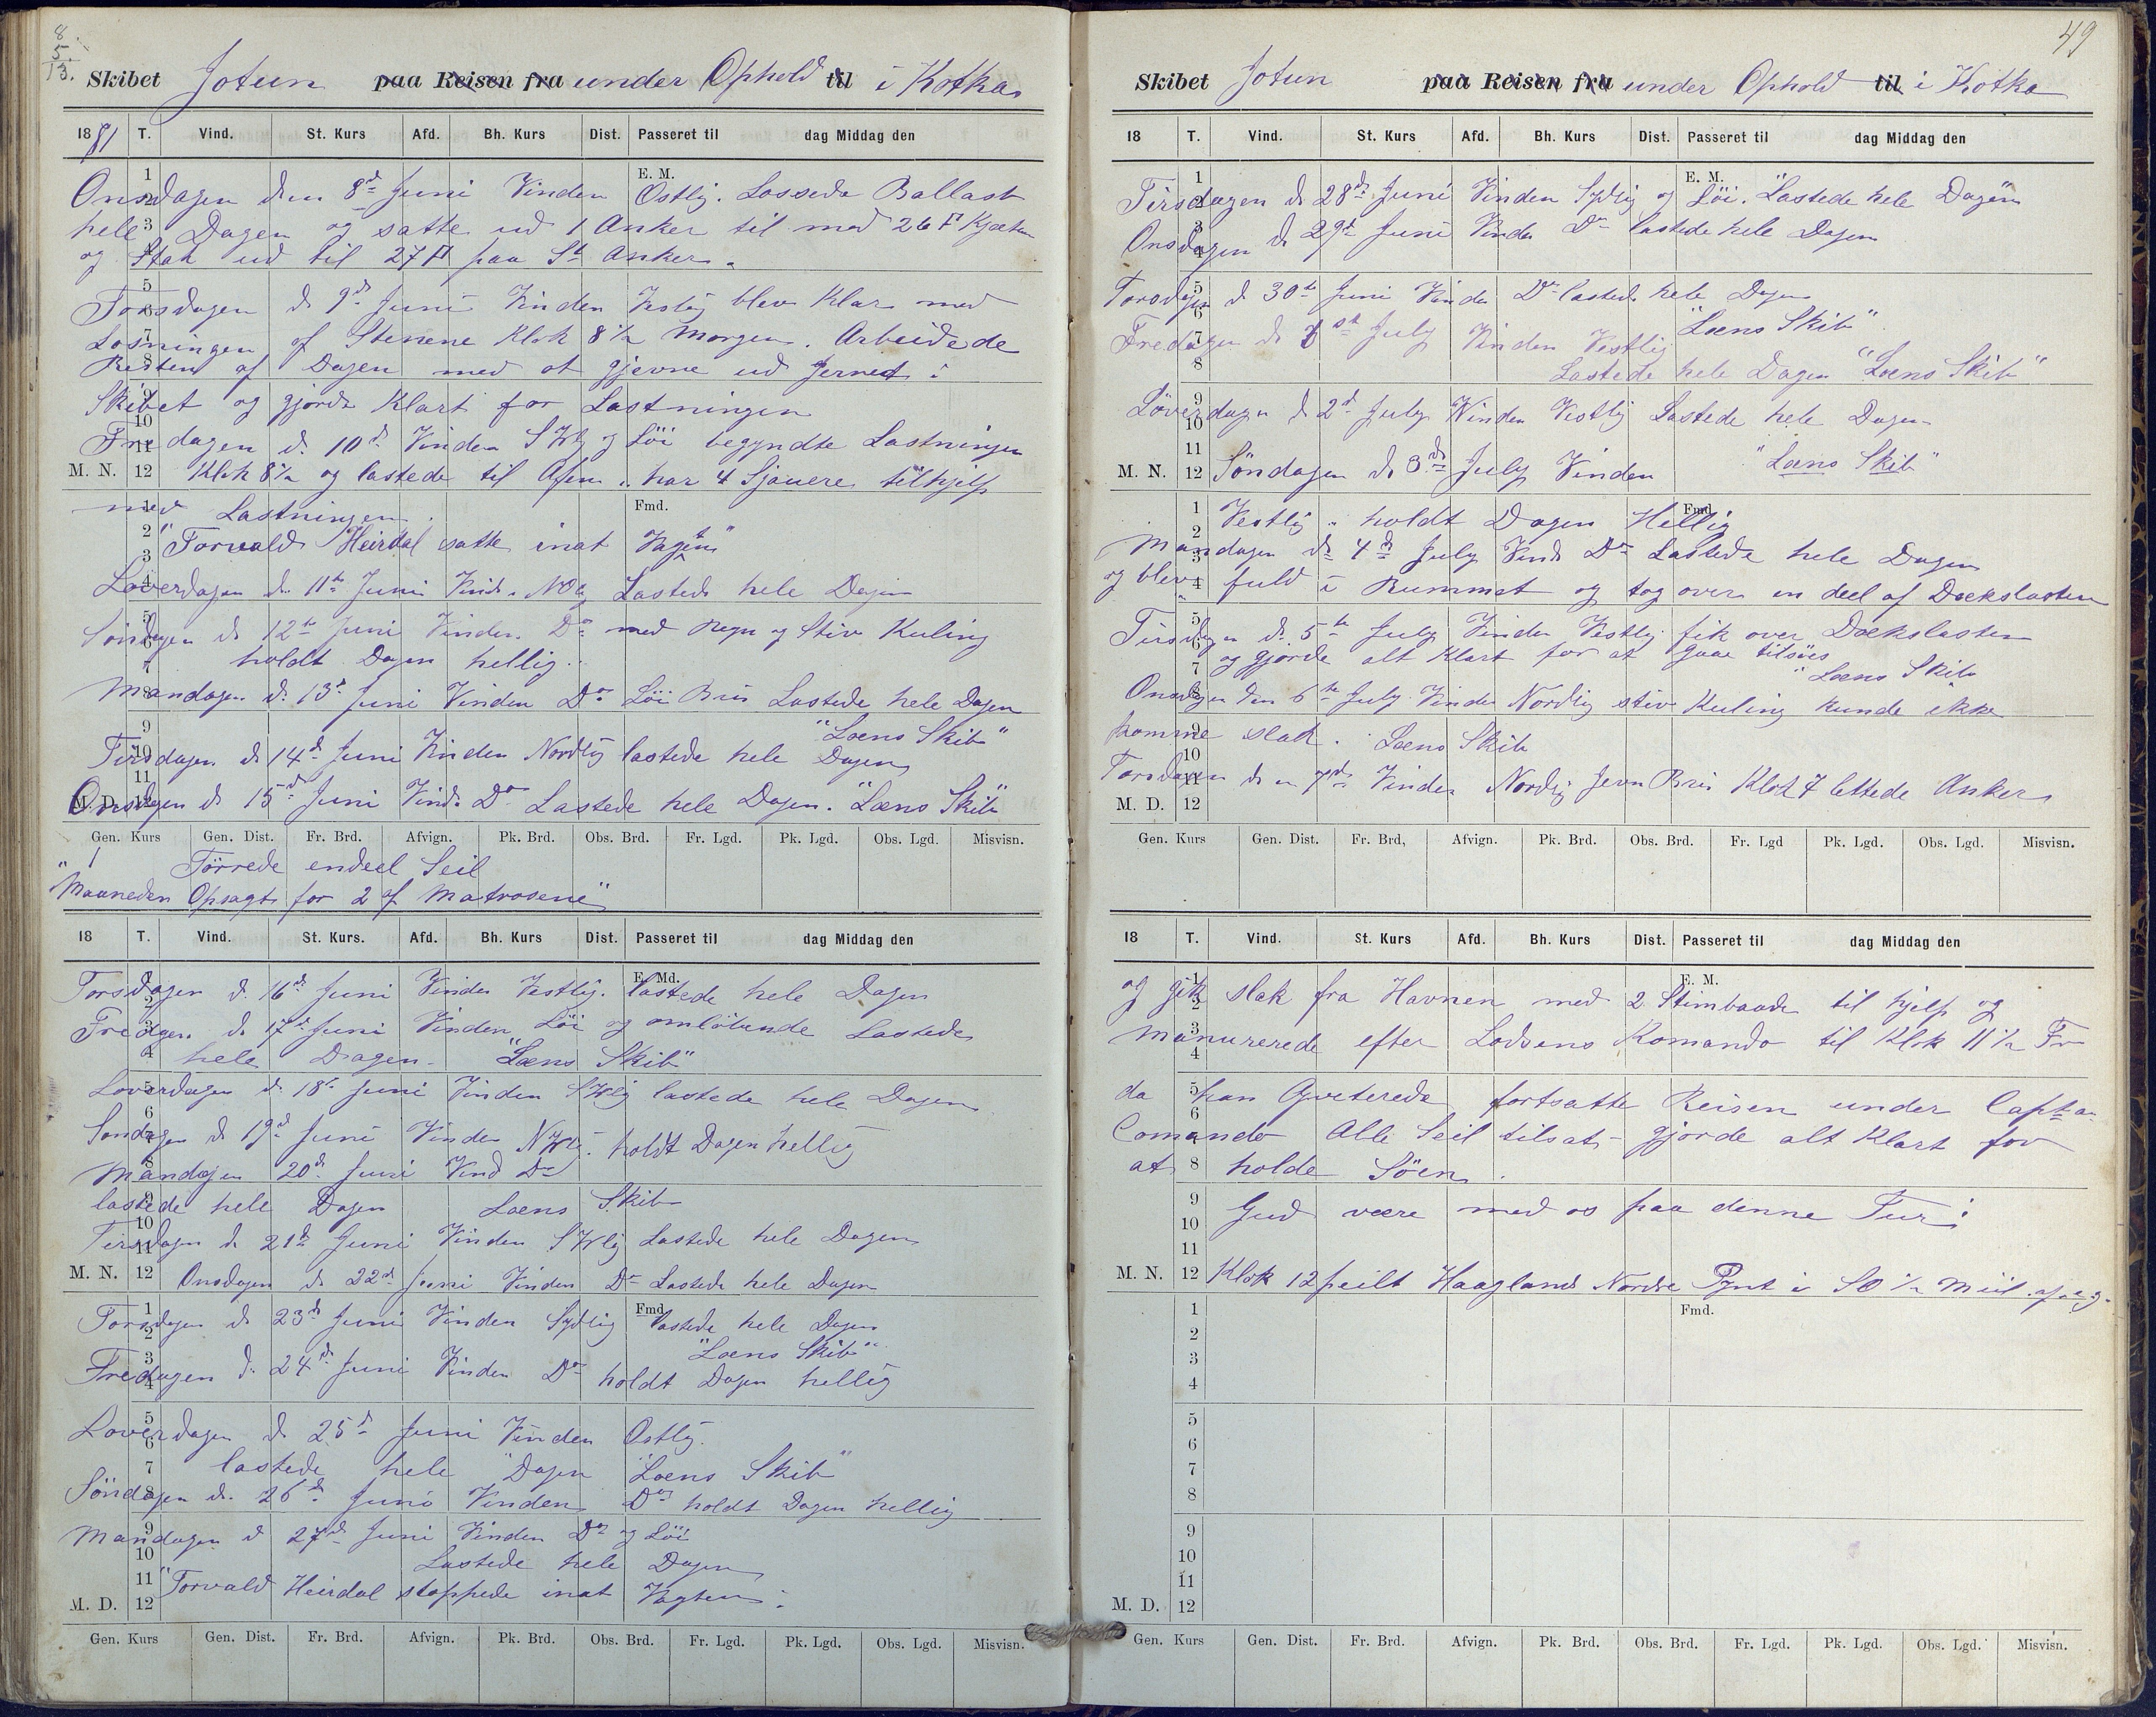 8
5
13.
Skibet Jotun paa Reisen fra under Ophold til i Kotka
1881 T. Vind. St. Kurs Afd. Bh. Kurs Dist. Passeret til dag Middag den
E. M.
Onsdagen den 8de Juni Vinden Ostlig. Lossede Ballast
hele Dagen og satte ud 1 Anker til med 26 F Kjæten
og Stak ud til 27 F paa St Anker.
Torsdagen d 9d Juni Vinden Vestlig blev Klar med
Losningen af Stenene Klok 8 1/2 Morgen. Arbeidede
Resten af Dagen med at gjevne ud Jernet i
Skibet og gjorde Klart for Lastningen
Fredagen d. 10d Vinden SWlg og Löi begyndte Lastningen
M. N. 12 Klok 8 1/2 og lastede til Aften. har 4 Sjauere tilhjelp
med Lastningen. Fmd.
"Torvald Heirdal satte inat Vagten"
Löverdagen d. 11te Juni Vind. NOlg Lastede hele Dagen
Söndagen d 12te Juni Vinden Do med Regn og Stiv Kuling
holdt Dagen hellig.
Mandagen d. 13d Juni Vinden Do Löi Bris Lastede hele Dagen
"Læns Skib"
Tirsdagen d 14d Juni Vinden Nordlig lastede hele Dagen
M. D. 12 Onsdagen d 15d Juni Vind. Do Lastede hele Dagen. "Læns Skib"
Gen. Kurs Gen. Dist. Fr. Brd. Afvign. Pk. Brd. Obs. Brd. Fr. Lgd. Pk. Lgd. Obs. Lgd. Misvisn.
" 1 Törrede endeel Seil
Maaneden Opsagt for 2 af Matrosene"
18 T. Vind. St. Kurs. Afd. Bh. Kurs Dist. Passeret til dag Middag den
E. Md.
Torsdagen d. 16d Juni Vinden Vestlig. lastede hele Dagen
Fredagen d. 17d Juni Vinden Löi og omlöbende Lastede
hele Dagen. "Læns Skib"
Loverdagen d. 18d Juni Vinden SWlig lastede hele Dagen
Sondagen d 19d Juni Vinden NWlig. holdt Dagen hellig
Mandagen 20d Juni Vind Do
lastede hele Dagen Læns Skib
Tirsdagen d 21de Juni Vinden SWlig Lastede hele Dagen
M. N. 12 Onsdagen d 22d Juni Vinden Do Lastede hele Dagen
Fmd.
Torsdagen d 23d Juni Vinden Sydlig lastede hele Dagen
"Læns Skib"
Fredagen d. 24d Juni Vinden Do holdt Dagen hellig
Loverdagen d 25d Juni Vinden Ostlig.
lastede hele Dagen "Læns Skib"
Söndagen d. 26d Juni Vinden Do holdt Dagen hellig
Mandagen d 27d Juni Vinden Do og Löi
Lastede hele Dagen
"Torvald Heirdal stoppede inat Vagten.
M. D. 12
Gen. Kurs Gen. Dist. Fr. Brd. Afvign. Pk. Brd. Obs. Brd. Fr. Lgd. Pk. Lgd. Obs. Lgd. Misvisn.
49
Skibet Jotun paa Reisen fra under Ophold til i Kotka
18 T. Vind. St. Kurs Afd. Bh. Kurs Dist. Passeret til dag Middag den
E. M.
Tirsdagen d 28de Juni Vinden Sydlig og Löi. Lastede hele Dagen
Onsdagen d 29d Juni Vinden Do lastede hele Dagen
Torsdagen d 30te Juni Vinden Do lastede hele Dagen
"Læns Skib"
Fredagen d 1st July Vinden Vestlig
Lastede hele Dagen "Læns Skib"
Löverdagen d 2d July Vinden Vestlig Lastede hele Dagen
"Læns Skib"
M. N. 12 Söndagen d. 3d July Vinden
Fmd.
Vestlig. holdt Dagen Hellig
Mandagen d 4d July Vind Do Lastede hele Dagen
og blev fuld i Rummet og tog over en deel af Dækslasten
Tirsdagen d. 5te July Vinden Vestlig. fik over Dækslasten
og gjorde alt Klart for at gaae tilsöes
"Læns Skib
Onsdagen den 6te July. Vinden Nordlig stiv Kuling kunde ikke
komme slak. Læns Skib
Torsdagen den 7de Vinden Nordlig Jevn Bris Klok 7 lettede Anker
M. D. 12
Gen. Kurs Gen. Dist. Fr. Brd, Afvign. Pk. Brd. Obs. Brd. Fr. Lgd Pk. Lgd. Obs. Lgd. Misvisn.
18 T. Vind. St. Kurs Afd. Bh. Kurs Dist. Passeret til dag Middag den
E. M.
og gik slak fra Havnen med 2 Stimbaade til hjelp og
Manurerede efter Lodsens Komando til Klok 11 1/2 Fm
da han Qviterede fortsatte Reisen under Capt.
Comando Alle Seil tilsat. gjorde alt Klart for
at holde Söen.
Gud være med os paa denne Tur
M. N. 12 Klok 12 peilt Haagland Nordre Pynt i SO 1/2 Miil
Fmd.
1
2
3
4
5
6
7
8
9
10
11
M. D. 12
Gen. Kurs Gen. Dist. Fr. Brd. Afvign. Pk. Brd. Obs. Brd. Fr. Lgd. Pk. Lgd. Obs. Lgd. Misvisn.